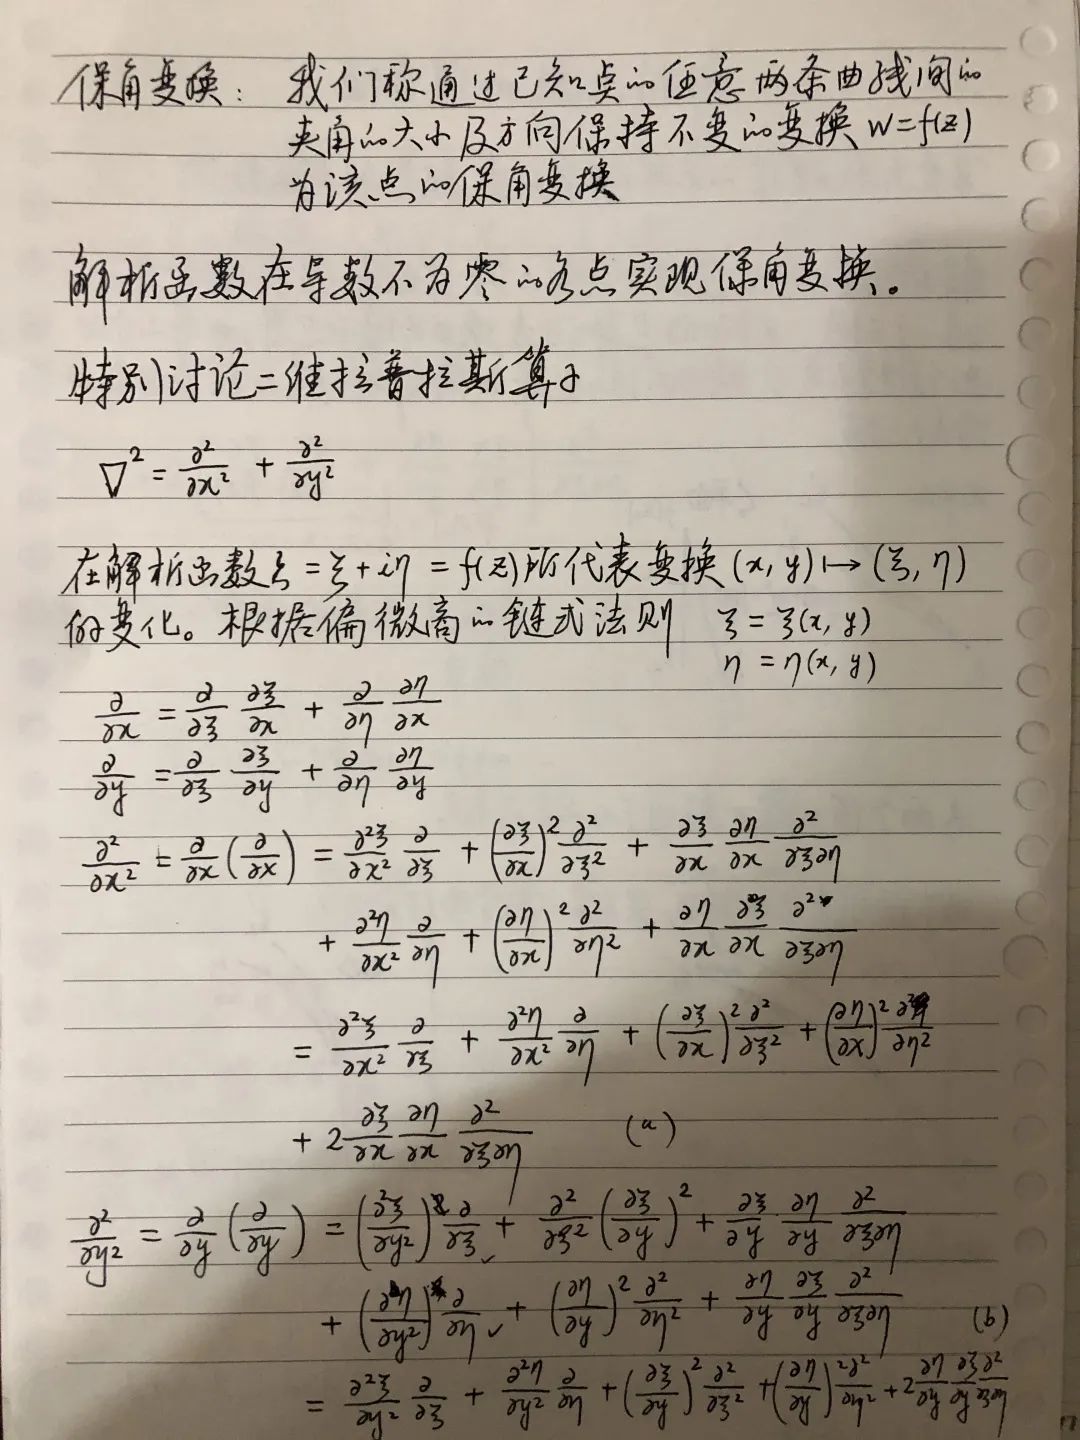 保角变换： 我们称通过已知点的任意两条曲线间的
夹角的大小及方向保持不变的变换 W=f(z)
为该点的保角变换
解析函数在导数不为零的各点实现保角变换。
特别讨论二维拉普拉斯算子
∇² = ∂²/∂x² + ∂²/∂y²
在解析函数ζ = ξ + iη = f(z)所代表变换 (x, y) ↦ (ξ, η)
的变化。根据偏微商的链式法则 ξ = ξ(x, y)
η = η(x, y)
∂/∂x = ∂/∂ξ ∂ξ/∂x + ∂/∂η ∂η/∂x
∂/∂y = ∂/∂ξ ∂ξ/∂y + ∂/∂η ∂η/∂y
∂²/∂x² = ∂/∂x (∂/∂x) = ∂²ξ/∂x² ∂/∂ξ + (∂ξ/∂x)² ∂²/∂ξ² + ∂ξ/∂x ∂η/∂x ∂²/∂ξ∂η
+ ∂²η/∂x² ∂/∂η + (∂η/∂x)² ∂²/∂η² + ∂η/∂x ∂ξ/∂x ∂²/∂ξ∂η
= ∂²ξ/∂x² ∂/∂ξ + ∂²η/∂x² ∂/∂η + (∂ξ/∂x)² ∂²/∂ξ² + (∂η/∂x)² ∂²/∂η²
+ 2 ∂ξ/∂x ∂η/∂x ∂²/∂ξ∂η (a)
∂²/∂y² = ∂/∂y (∂/∂y) = (∂²ξ/∂y²) ∂/∂ξ + ∂²/∂ξ² (∂ξ/∂y)² + ∂ξ/∂y ∂η/∂y ∂²/∂ξ∂η
+ (∂²η/∂y²) ∂/∂η + (∂η/∂y)² ∂²/∂η² + ∂η/∂y ∂ξ/∂y ∂²/∂ξ∂η (b)
= ∂²ξ/∂y² ∂/∂ξ + ∂²η/∂y² ∂/∂η + (∂ξ/∂y)² ∂²/∂ξ² + (∂η/∂y)² ∂²/∂η² + 2 ∂η/∂y ∂ξ/∂y ∂²/∂ξ∂η